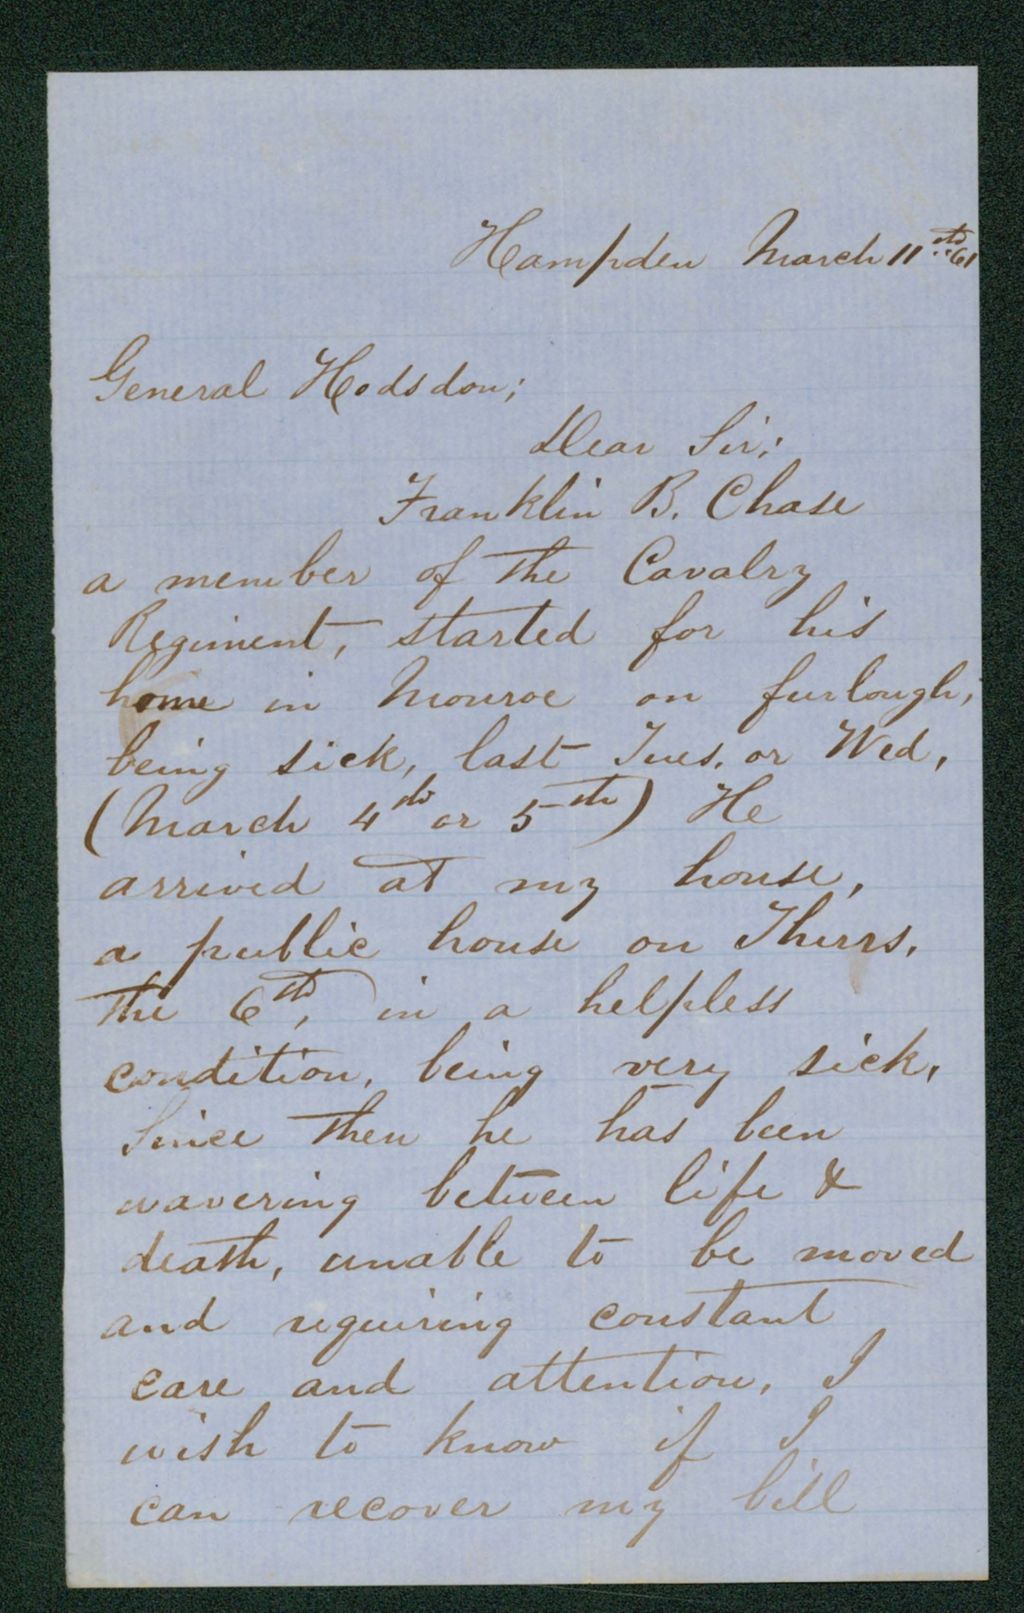 Hampden March 11th. 61
General Hodsdon;
Dear Sir;
Franklin B. Chase
a member of the Cavalry
Regiment, started for his
home in Monroe on furlough,
being sick, last Tues. or Wed,
(March 4th or 5th) He
arrived at my house,
a public house on Thurs.
the 6th, in a helpless
condition, being very sick.
Since then he has been
wavering between life &
death, unable to be moved
and requiring constant
care and attention, I
wish to know if I
can recover my bill